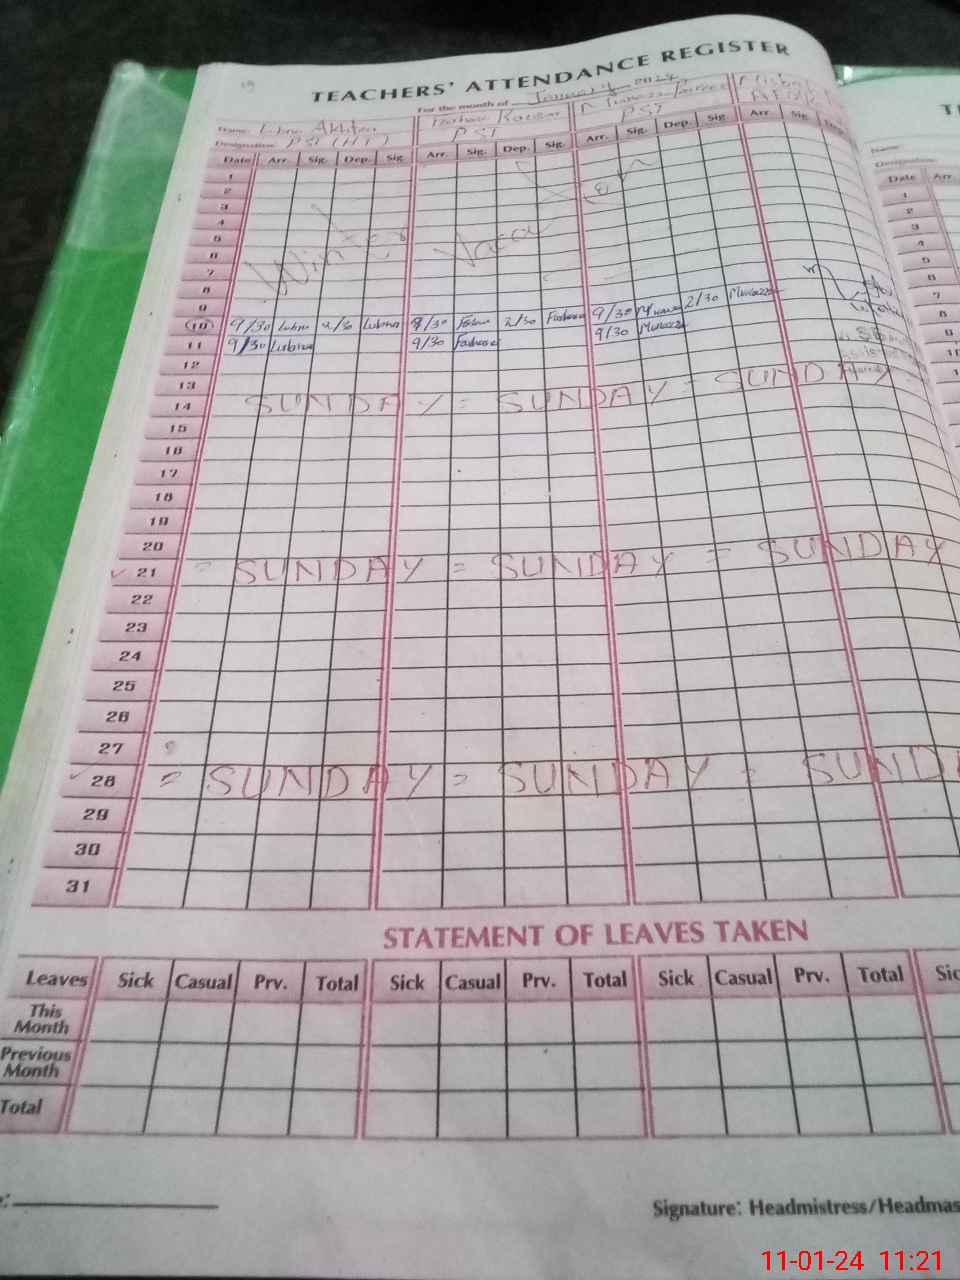 19
TEACHERS' ATTENDANCE REGISTER
For the month of January 2024
Name: Lubna Akhtar
Designation PST (HT) PST PST
Date Arr. Sig. Dep. Sig. Arr. Sig. Dep. Sig. Arr. Sig. Dep. Sig. Arr. Sig.
Name:
Designation
Date Arr.
1 1
2 2
3 3
4 4
5 5
6 6
7 7
8 8
Winter Vacation
9
10 9/30 Lubna 2/30 Lubna 9/30 2/30 9/30 2/30
11 9/30 Lubna 9/30 9/30
12
13
14 SUNDAY = SUNDAY = SUNDAY
15
16
17
18
19
20
21 = SUNDAY = SUNDAY = SUNDAY
22
23
24
25
26
27
28 = SUNDAY = SUNDAY = SUNDA
29
30
31
STATEMENT OF LEAVES TAKEN
Leaves Sick Casual Prv. Total Sick Casual Prv. Total Sick Casual Prv. Total Sic
This Month
Previous Month
Total
Signature: Headmistress/Headmas
11-01-24 11:21